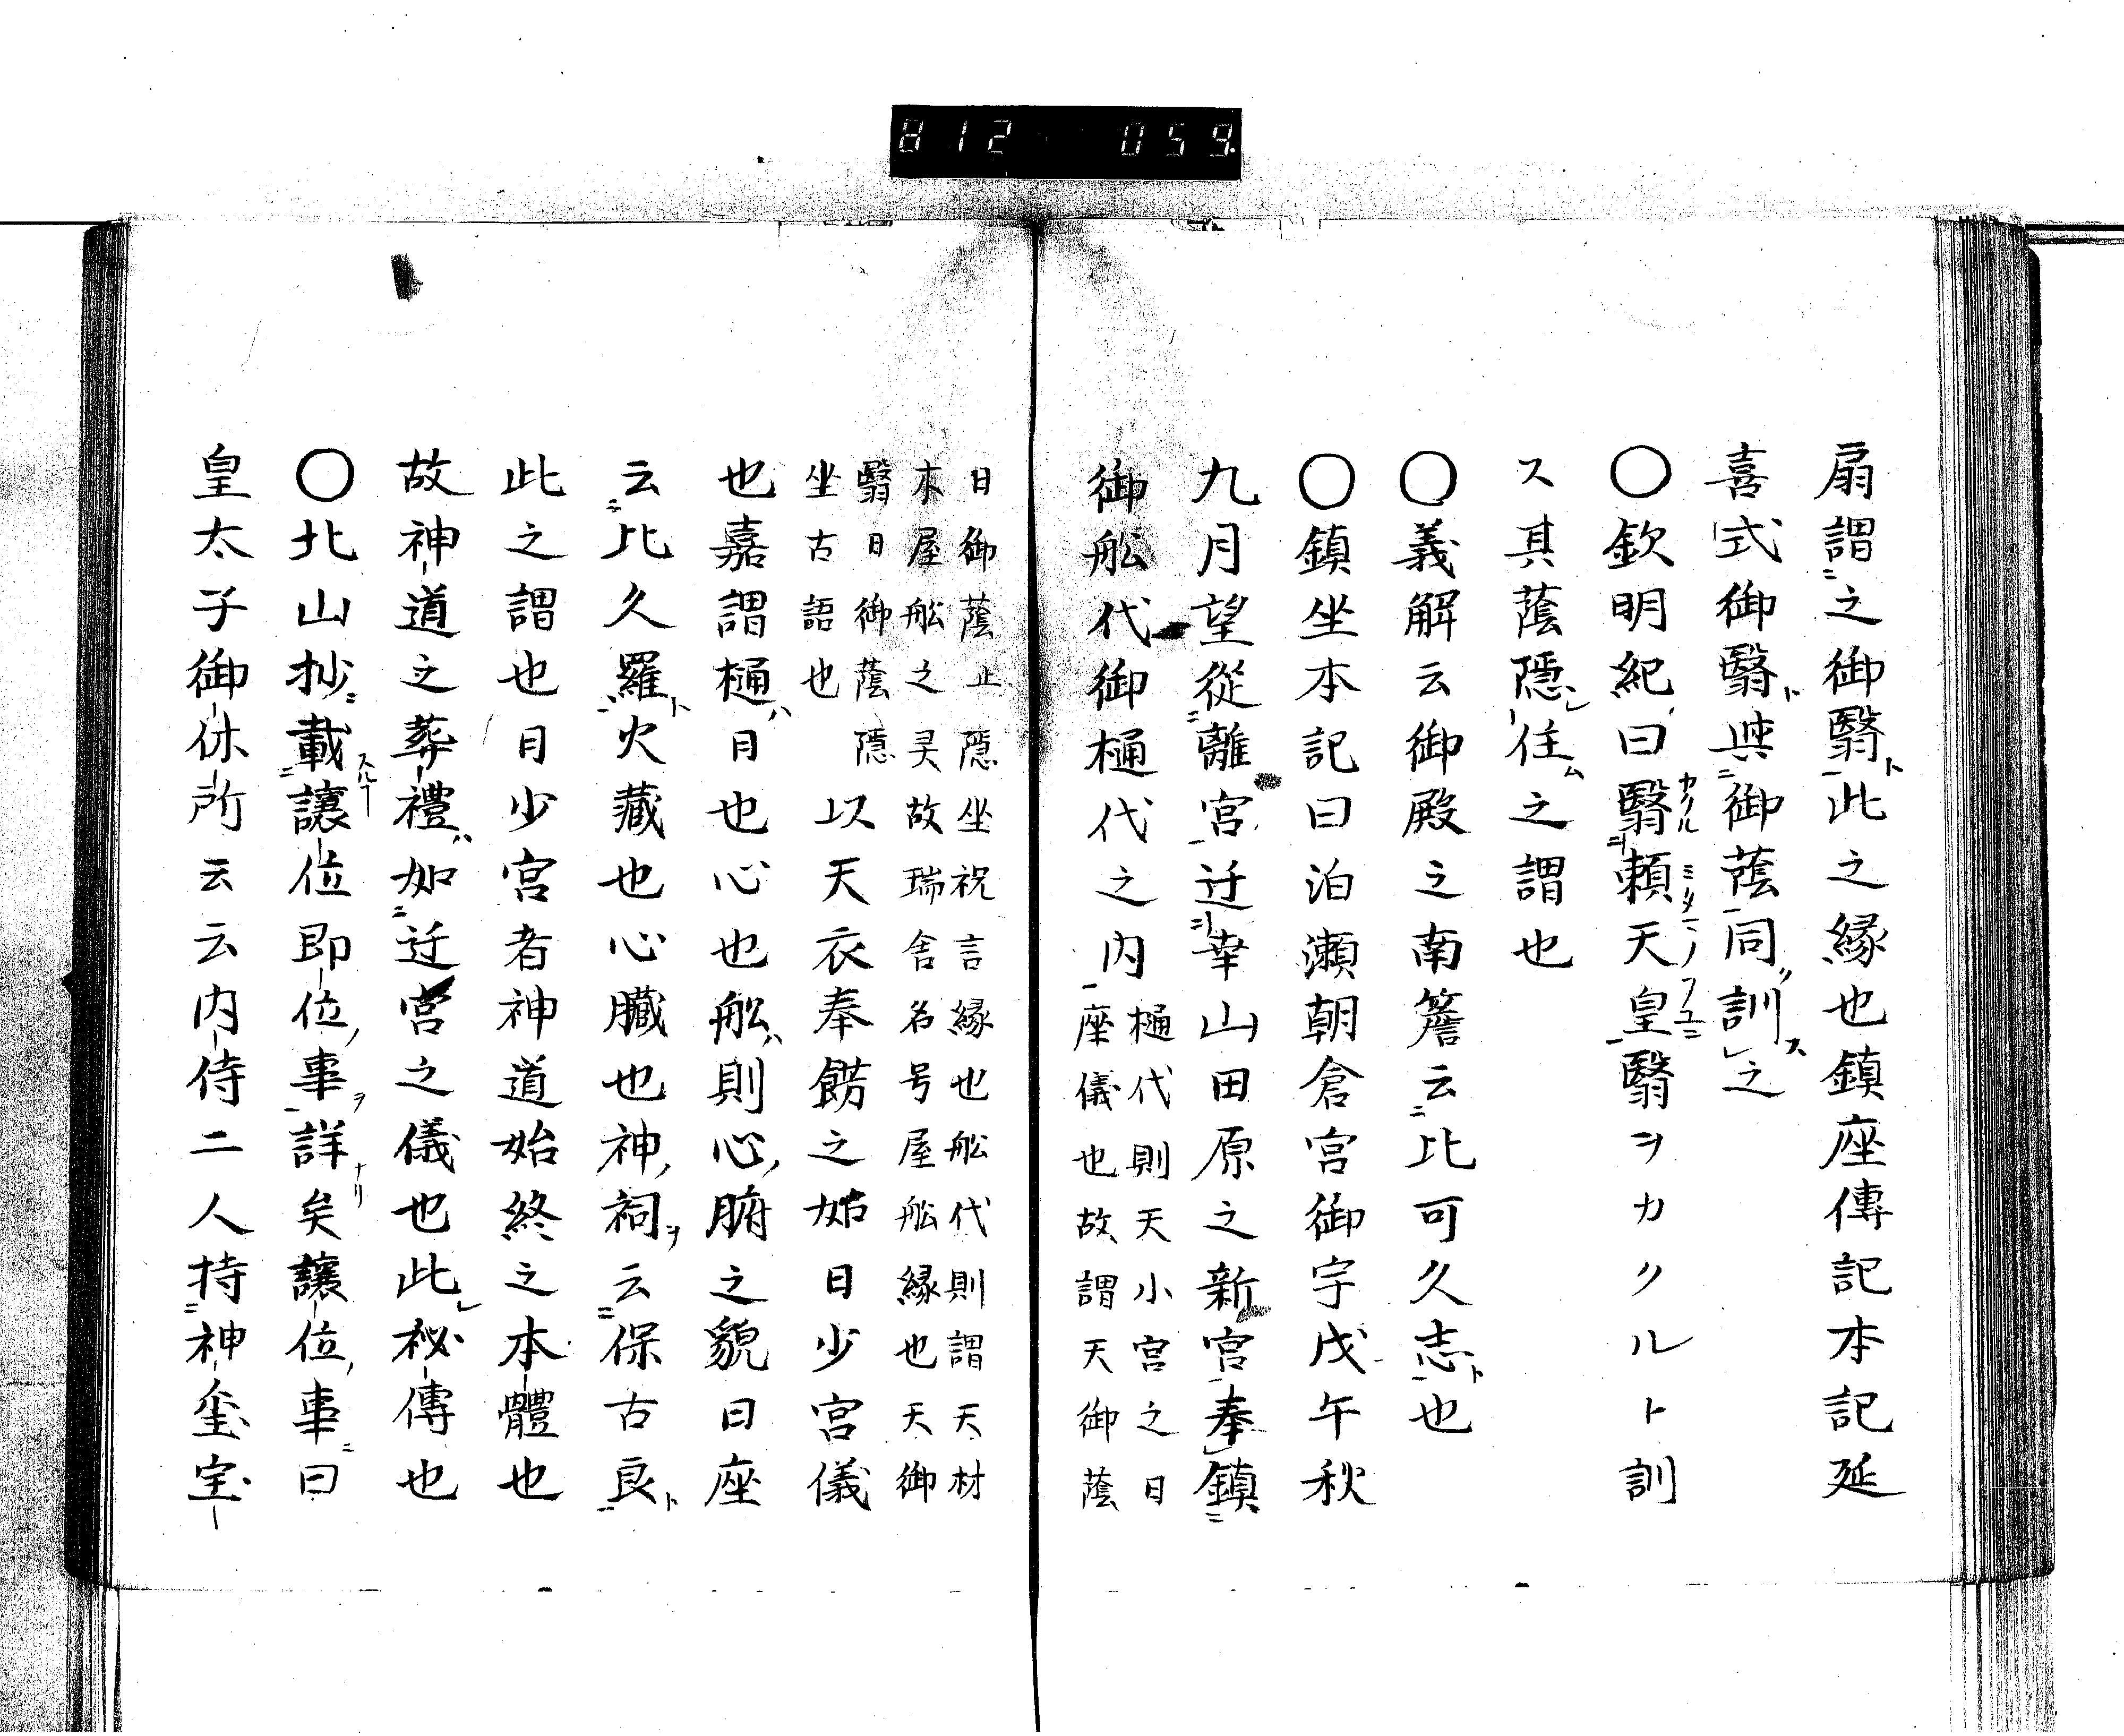 812 059.
扇謂之御翳此之縁也鎮座傳記本記延
喜式御翳與御蔭同訓之
〇欽明紀曰翳頼天皇翳ヲカクルト訓
ス其蔭隠任之謂也
〇義解云御殿之南簷云比可久志也
〇鎮坐本記曰泊瀬朝倉宮御宇戊午秋
九月望從離宮迁幸山田原之新宮奉鎮
御舩代御樋代之内
樋代則天小宮之日
座儀也故謂天御蔭
日御蔭止隠坐祝言縁也舩代則謂天材
木屋舩之灵故瑞舎名号屋舩縁也天御
翳日御蔭隠
坐古語也
以天衣奉餝之如日少宮儀
也嘉謂樋月也心也舩則心腑之貌日座
云比久羅火藏也心臓也神祠云保古良
此之謂也日少宮者神道始終之本體也
故神道之葬禮如迁宮之儀也此秘傳也
〇北山抄載讓位即位事詳矣讓位事曰
皇太子御休所云云内侍二人持神璽宝